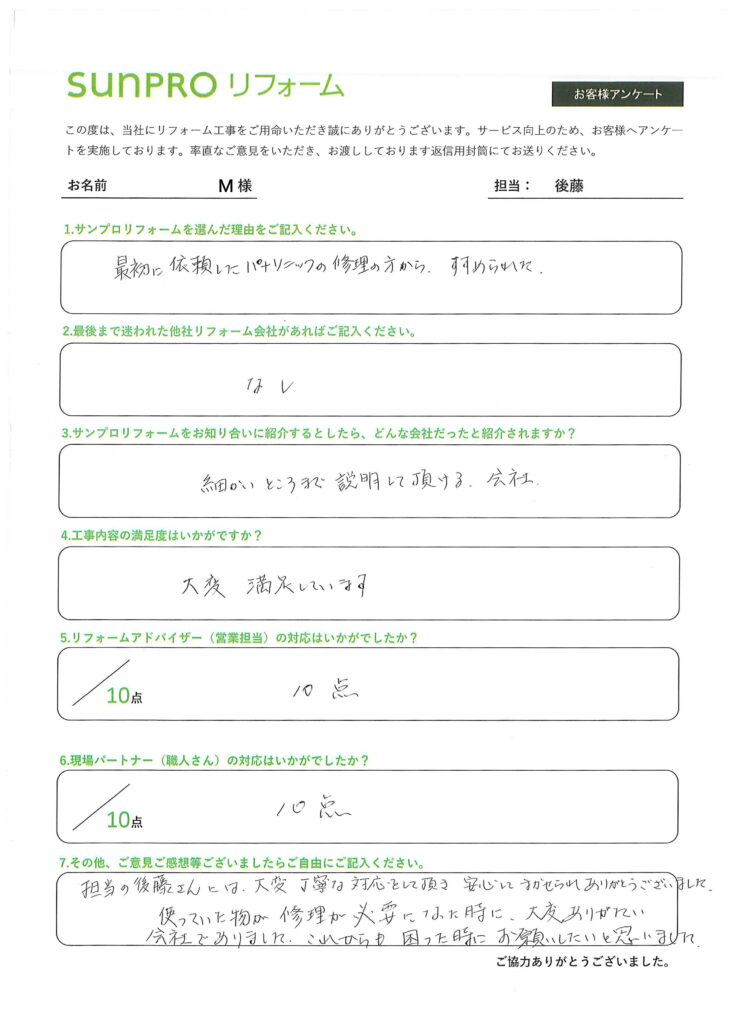 SunPRO リフォーム
お客様アンケート
この度は、当社にリフォーム工事をご用命いただき誠にありがとうございます。サービス向上のため、お客様へアンケー
トを実施しております。率直なご意見をいただき、お渡ししております返信用封筒にてお送りください。
お名前 M 様 担当： 後藤
1.サンプロリフォームを選んだ理由をご記入ください。
最初に依頼したパナソニックの修理の方から、すすめられた。
2.最後まで迷われた他社リフォーム会社があればご記入ください。
なし
3.サンプロリフォームをお知り合いに紹介するとしたら、どんな会社だったと紹介されますか？
細かいところまで説明して頂ける、会社。
4.工事内容の満足度はいかがですか？
大変 満足しています
5.リフォームアドバイザー（営業担当）の対応はいかがでしたか？
／10点 10点
6.現場パートナー（職人さん）の対応はいかがでしたか？
／10点 10点
7.その他、ご意見ご感想等ございましたらご自由にご記入ください。
担当の後藤さんには、大変丁寧な対応をして頂き 安心してまかせられありがとうございました。
使っていた物が修理が必要になった時に、大変ありがたい
会社でありました。これからも困った時にお願いしたいと思いました。
ご協力ありがとうございました。